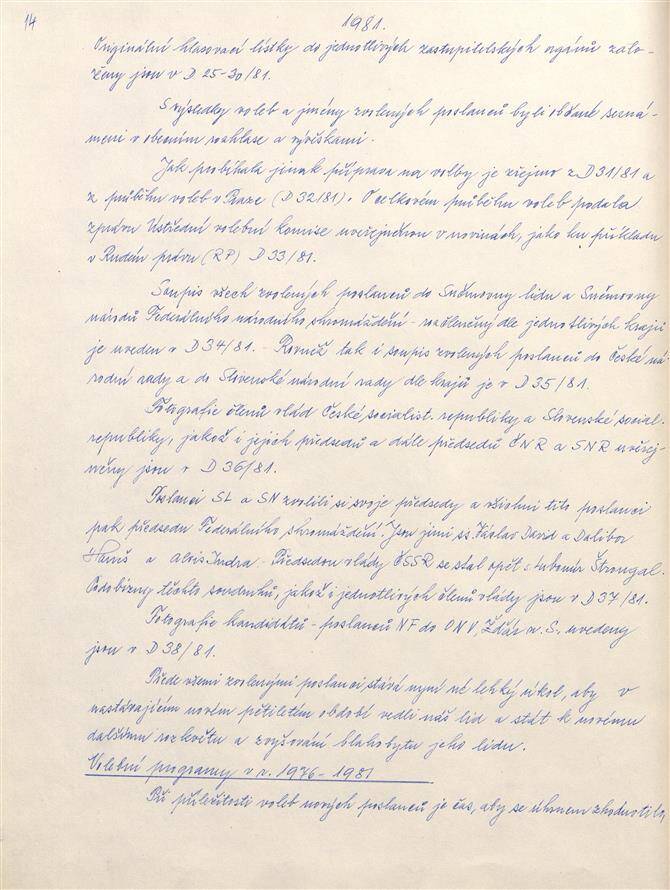 14
1981.
Originální hlasovací lístky do jednotlivých zastupitelských orgánů zalo-
ženy jsou v D 25-30/81.
S výsledky voleb a jmény zvolených poslanců byli občané sezná-
meni v obecním rozhlase a vývěskami.
Jak probíhala jinak příprava na volby je zřejmo z D 31/81 a
z průběhu voleb v Praze (D 32/81). O celkovém průběhu voleb podala
zprávu Ústřední volební komise uveřejněnou v novinách, jako ku příkladu
v Rudém právu (RP) D 33/81.
Soupis všech zvolených poslanců do Sněmovny lidu a Sněmovny
národů Federálního národního shromáždění - rozčleněný dle jednotlivých krajů
je uveden v D 34/81. - Rovněž tak i soupis zvolených poslanců do České ná-
rodní rady a do Slovenské národní rady dle krajů je v D 35/81.
Fotografie členů vlád České socialist. republiky a Slovenské social.
republiky, jakož i jejich předsedů a dále předsedů ČNR a SNR uveřej-
něny jsou v D 36/81.
Poslanci SL a SN zvolili si svoje předsedy a všichni tito poslanci
pak předsedu Federálního shromáždění. Jsou jimi ss. Václav David a Dalibor
Hanes a Alois Indra. Předsedou vlády ČSSR se stal opět s. Lubomír Štrougal.
Podobizny těchto soudruhů, jakož i jednotlivých členů vlády jsou v D 37/81.
Fotografie kandidátů - poslanců NF do ONV, Žďár n. S. uvedeny
jsou v D 38/81.
Přede všemi zvolenými poslanci stává nyní né lehký úkol, aby v
nastávajícím novém pětiletém období vedli náš lid a stát k novému
dalšímu rozkvětu a zvyšování blahobytu jeho lidu.
Volební programy v r. 1976-1981
Při příležitosti voleb nových poslanců je čas, aby se úhrnem zhodnotilo,